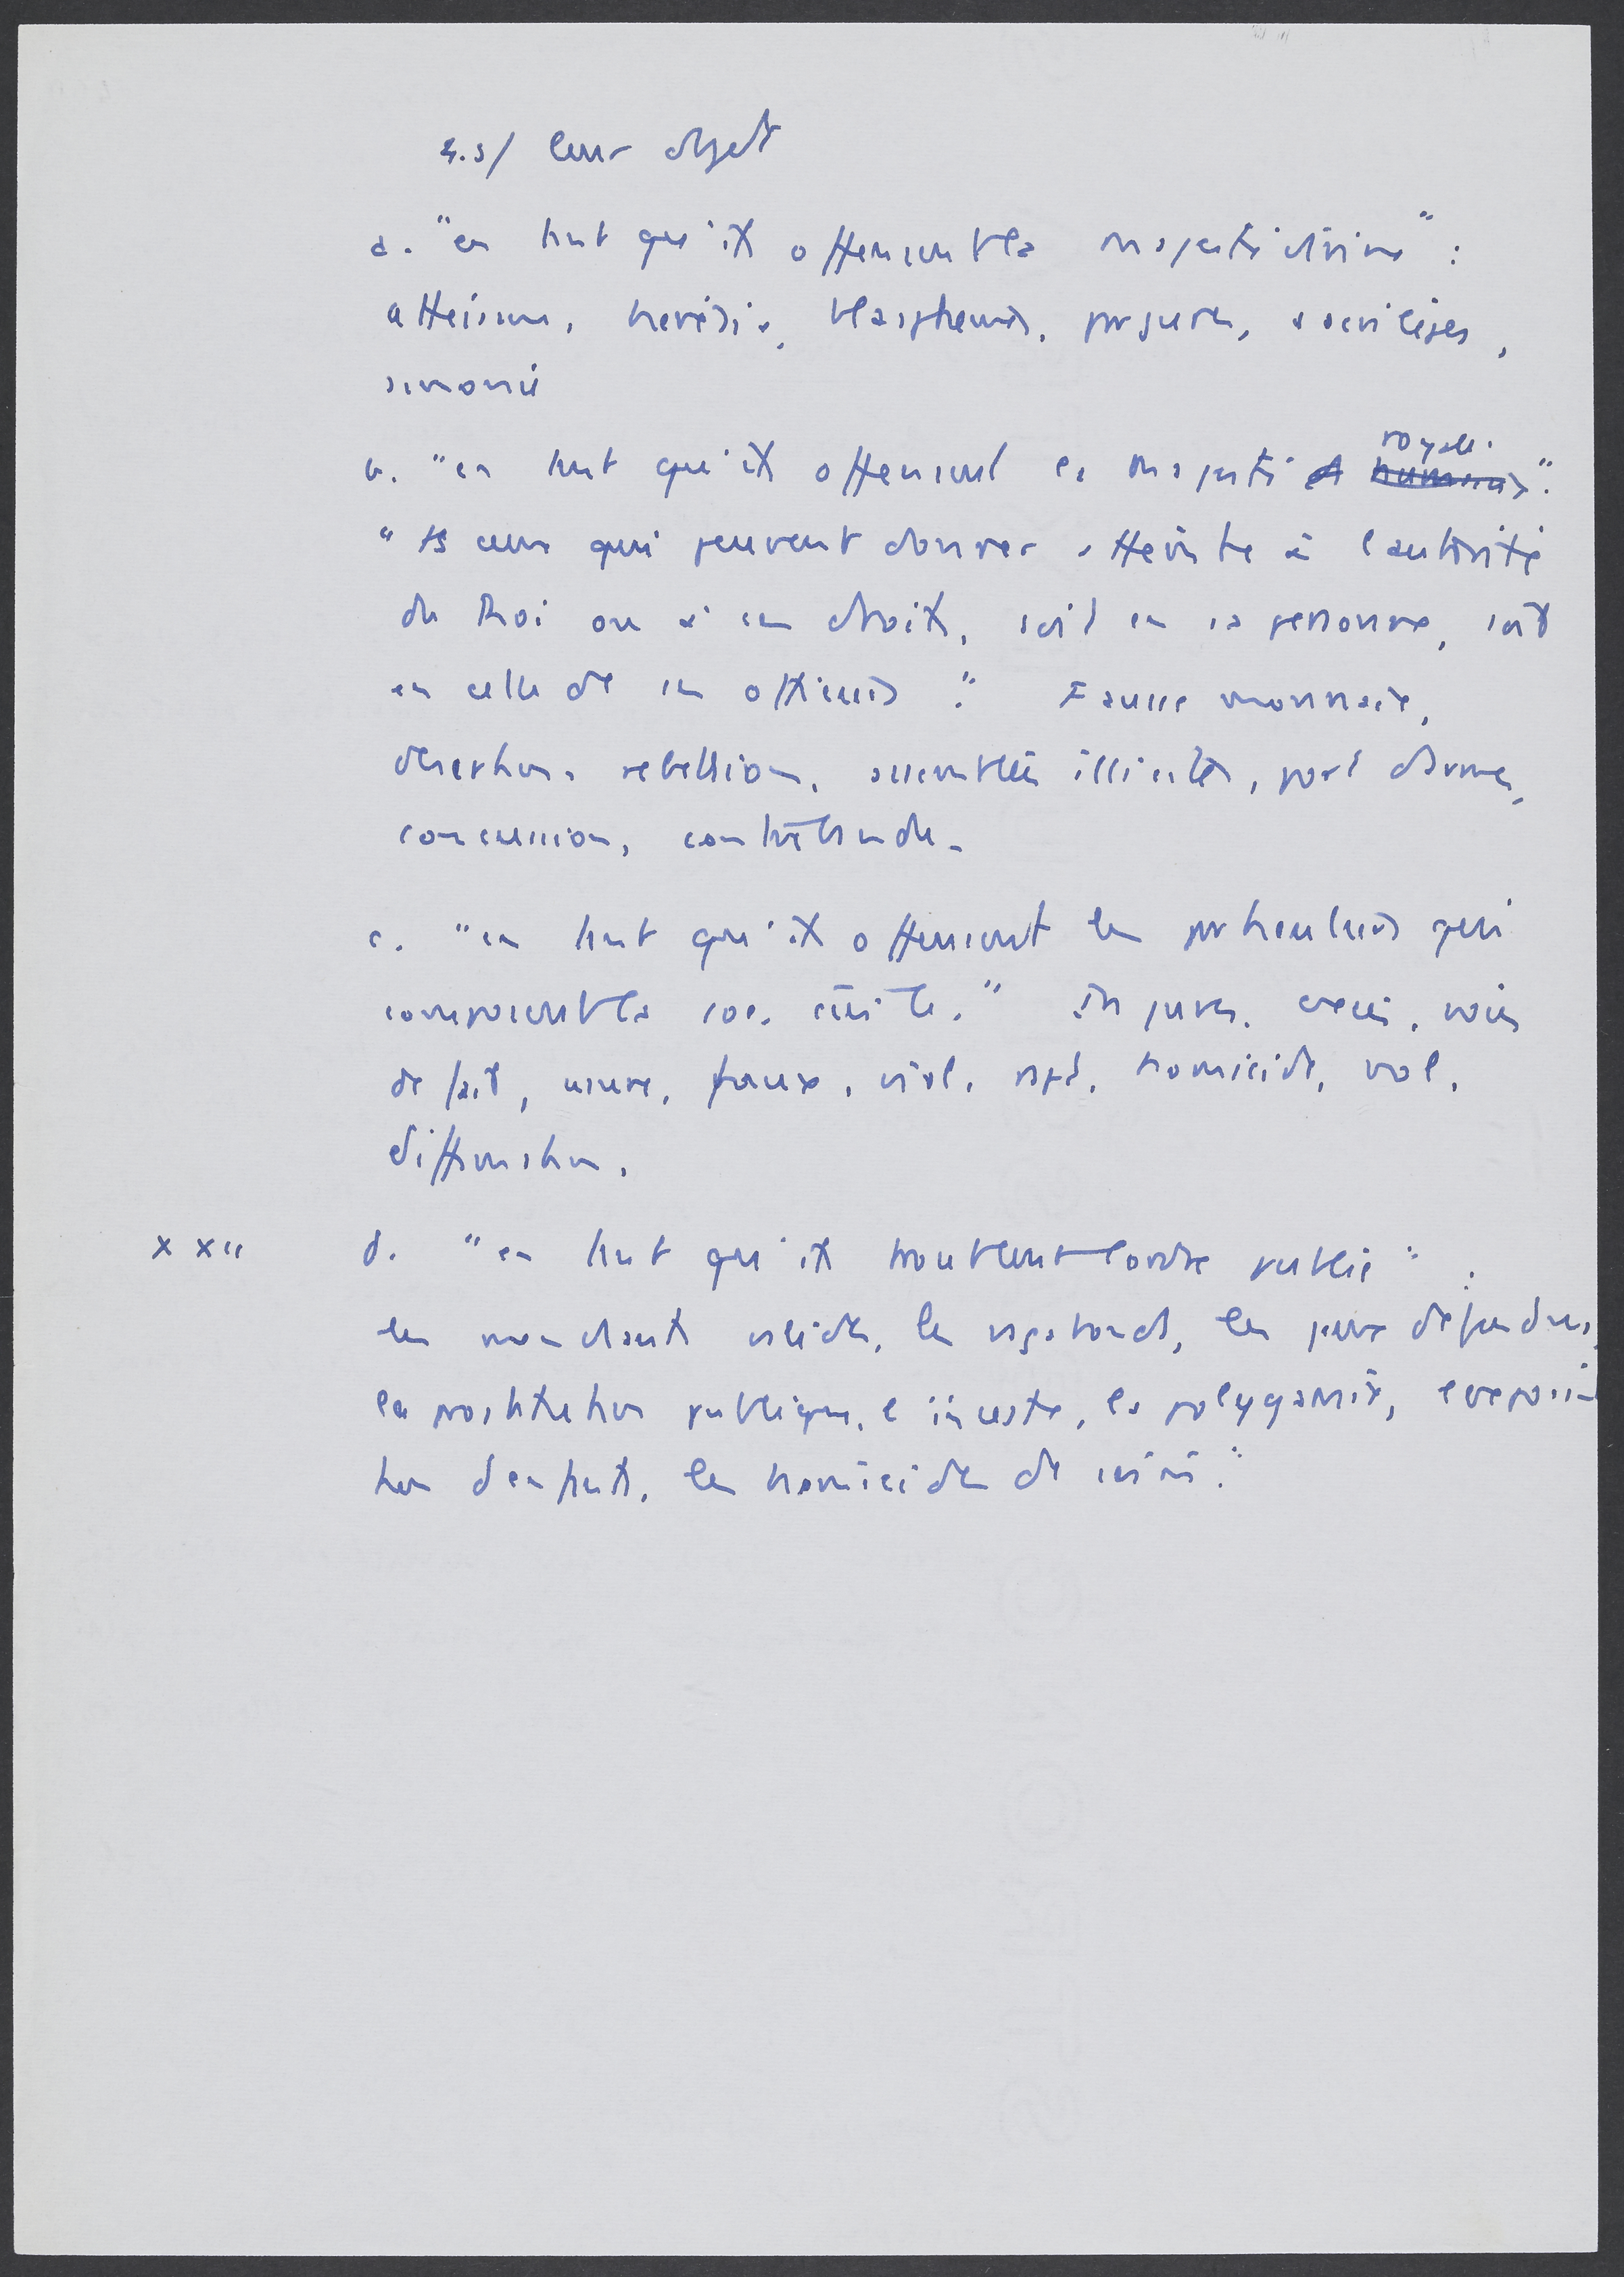 4.3/ leur objet
a. "en tant qu'ils offensent la majesté divine" :
atheisme, hérésie, blasphemes, parjures, sacrilèges,
simonie
b. "en tant qu'ils offensent la majesté royale".
"ts ceux qui peuvent donner atteinte à l'autorité
du Roi ou à ses droits, soit en sa personne, soit
en celle de ses officiers". Fausse monnaie,
desertion, rebellion, assemblées illicites, port d'armes,
concussion, contrebande.
c. "en tant qu'ils offensent les particuliers qui
composent la soc. civile." Injures, excès, voies
de fait, usure, faux, viol, rapt, homicide, vol,
diffamation.
x XII d. "en tant qu'ils troublent l'ordre public" :
les mendiants valides, les vagabonds, les jeux défendus,
la prostitution publique, l'inceste, la polygamie, l'exposi-
tion d'enfants, les homicides de